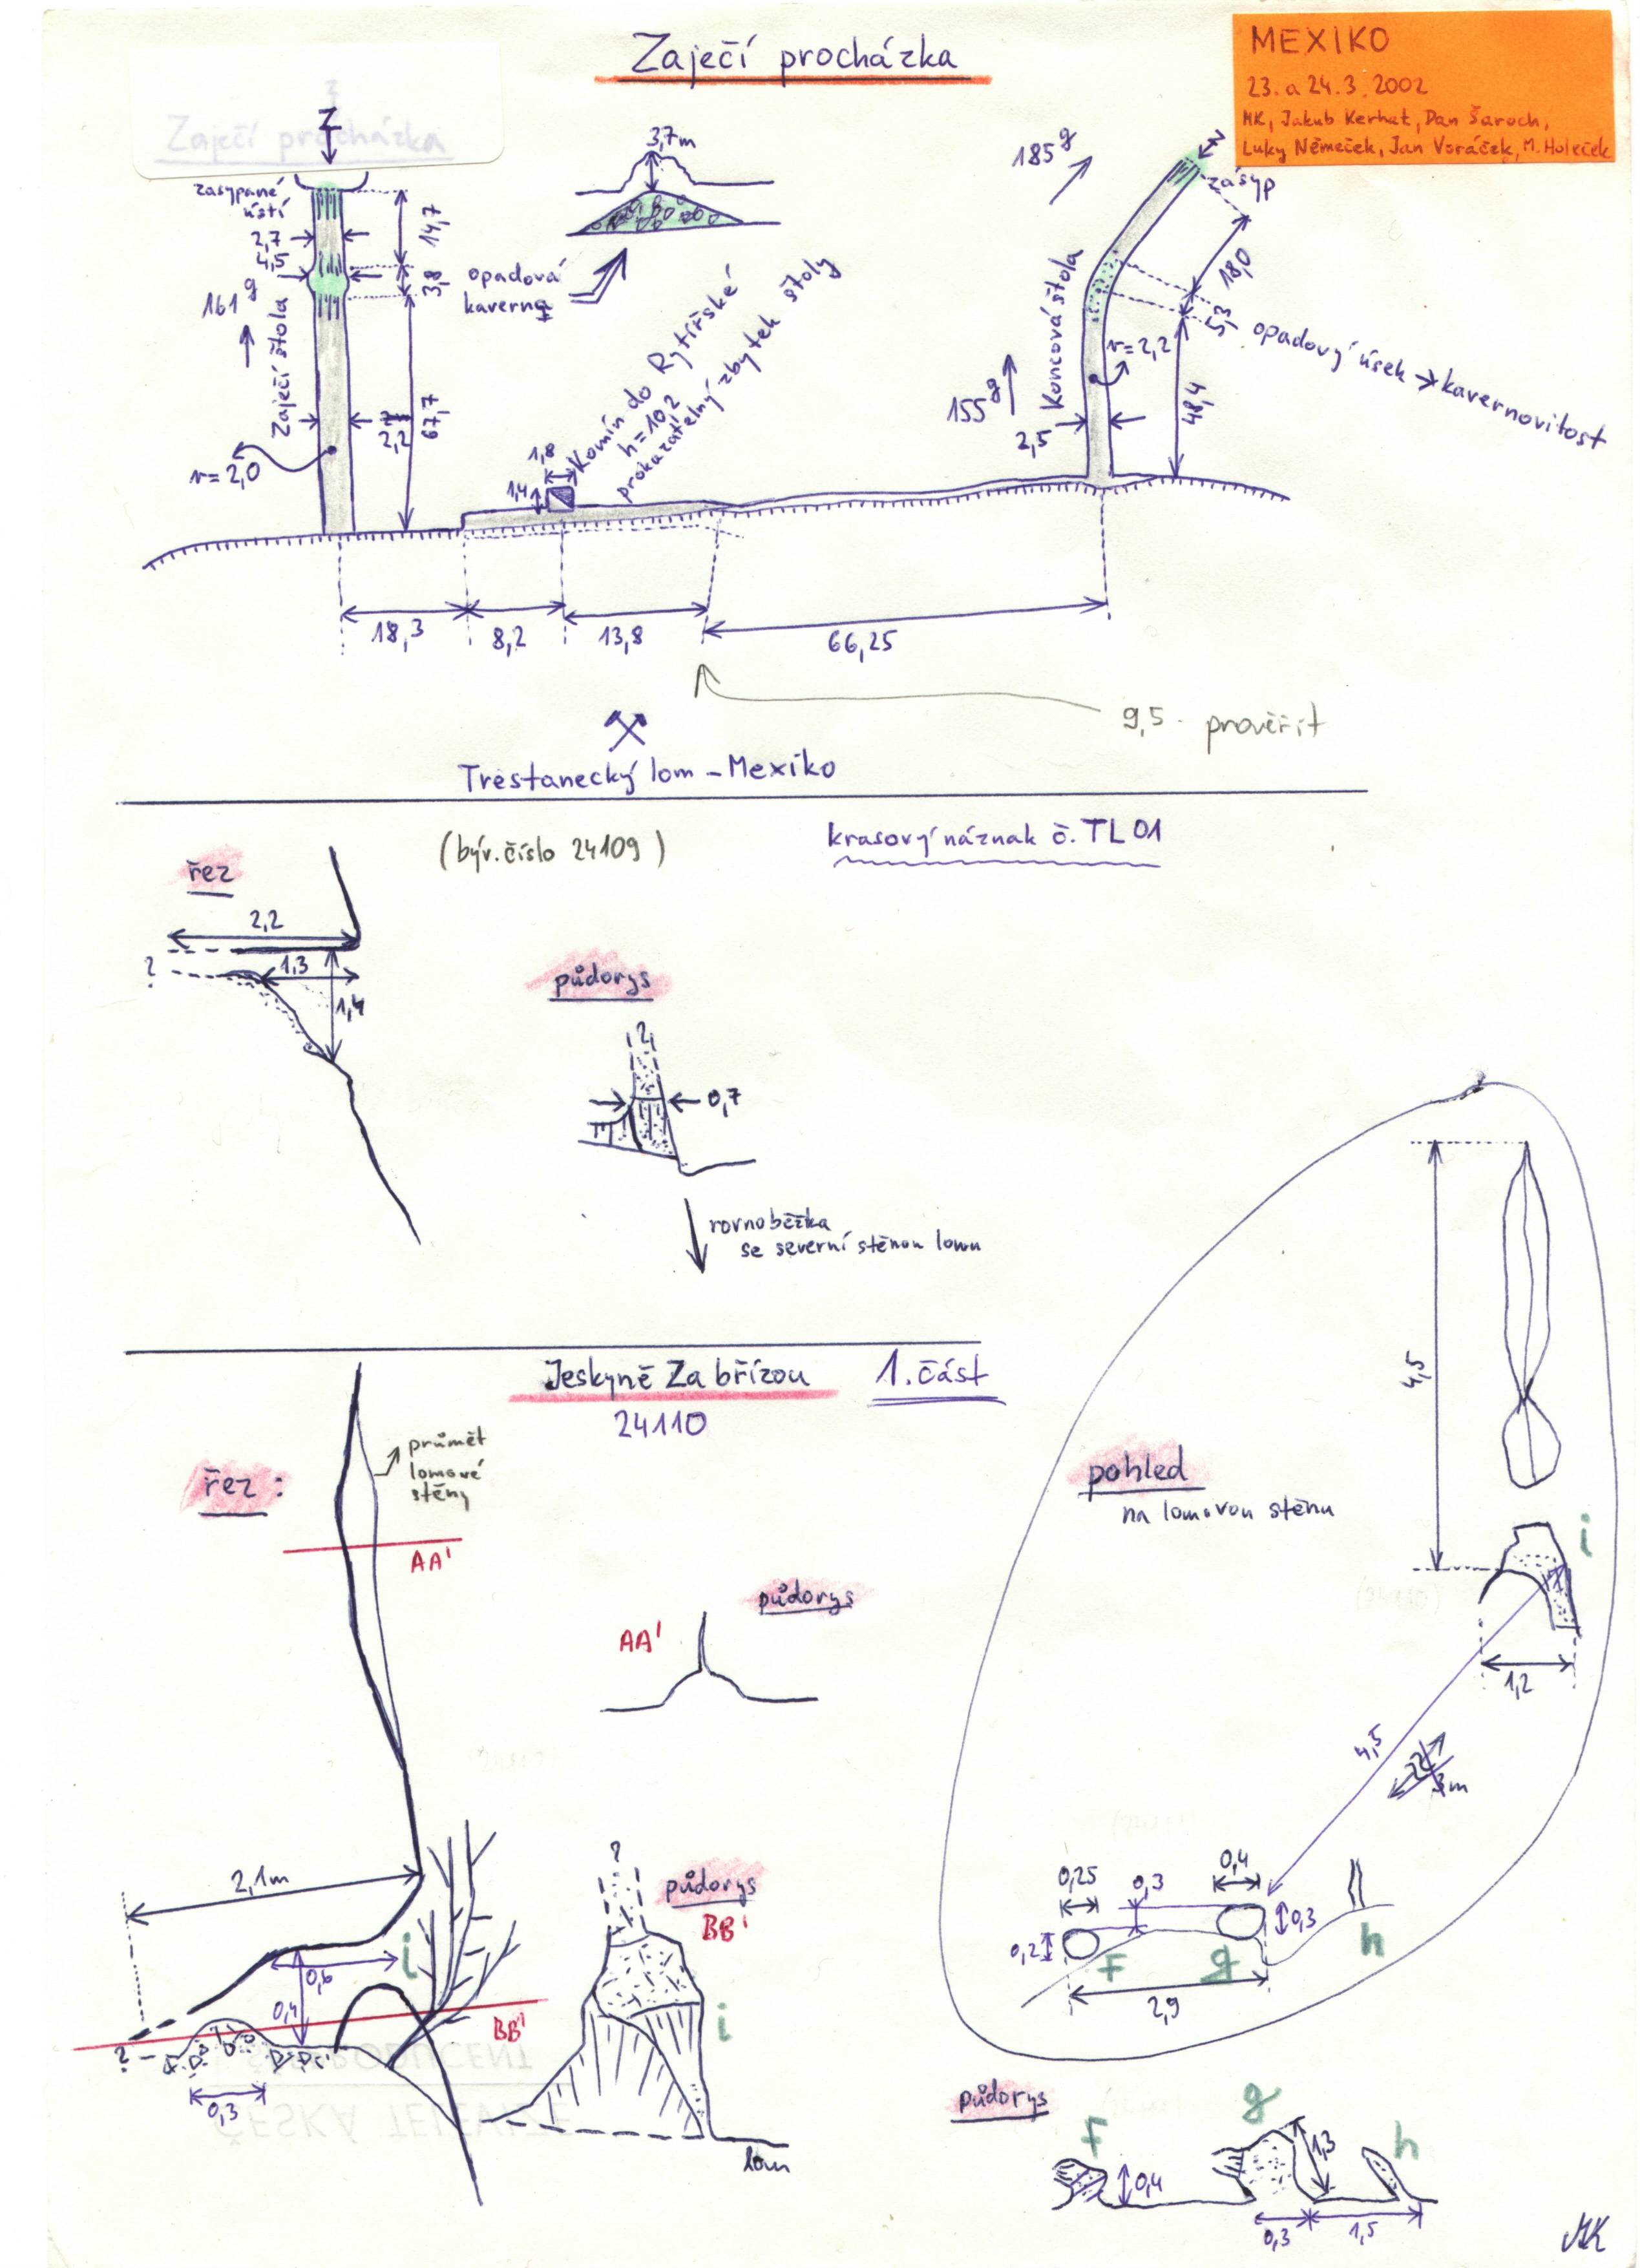 Zaječí procházka
MEXIKO
23. a 24.3.2002
MK, Jakub Kerhat, Dan Šaroch,
Luky Němeček, Jan Voráček, M. Holeček
Zaječí procházka
Z
zasypané
ústí
2,7
4,5
14,7
3,8
161g
Zaječí štola
67,7
2,2
v=2,0
3,7m
opadová
kaverna
Komín do Rytířské
h=10,2
prokazatelný zbytek štoly
1,8
1,4
185g
Z
zásyp
18,0
5,3
opadový úsek → kavernovitost
Koncová štola
v=2,2
155g
2,5
48,4
18,3
8,2
13,8
66,25
9,5 - prověřit
Trestanecký lom - Mexiko
(býv. číslo 24109)
krasový náznak č. TL01
řez
2,2
?
1,3
1,4
půdorys
?
0,7
rovnoběžka
se severní stěnou lomu
Jeskyně Za břízou
1. část
24110
řez:
průmět
lomové
stěny
AA'
půdorys
AA'
2,1m
i
0,6
0,4
BB'
?
0,3
?
půdorys
BB'
i
lom
pohled
na lomovou stěnu
4,5
i
1,2
4,5
3m
0,25
0,3
0,4
0,2
0,3
f
g
h
2,9
půdorys
f
g
h
0,4
1,3
0,3
1,5
MK
ČESKÁ TELEVIZE